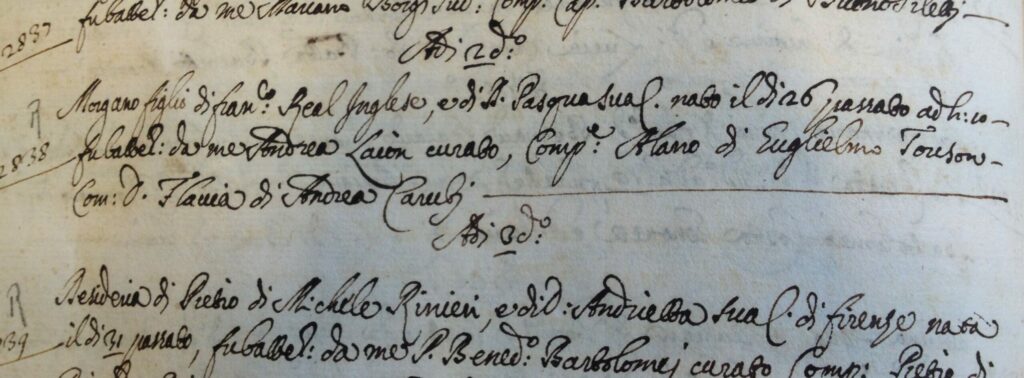 fu battez: da me Mariano Borgi sud: Comp: Cap. Bartolomeo di
2837
Adi 2 d.º
R Morgano figlio di fran.co Real Inglese, e di D. Pasqua sua C. nato il di 26 passato ad h: 10
2838 fu battez: da me Andrea Laion curato, Comp.e Alano di Guglielmo Touson
Com: D. Flavia di Andrea Carubj
Adi 3 d.º
R Benderia di Pietro di Michele Rinieri, e di D: Andrietta sua C. di firenze nata
39 il di 31 passato, fu battez: da me P. Bened.o Bartolomej curato Comp: Pietro di